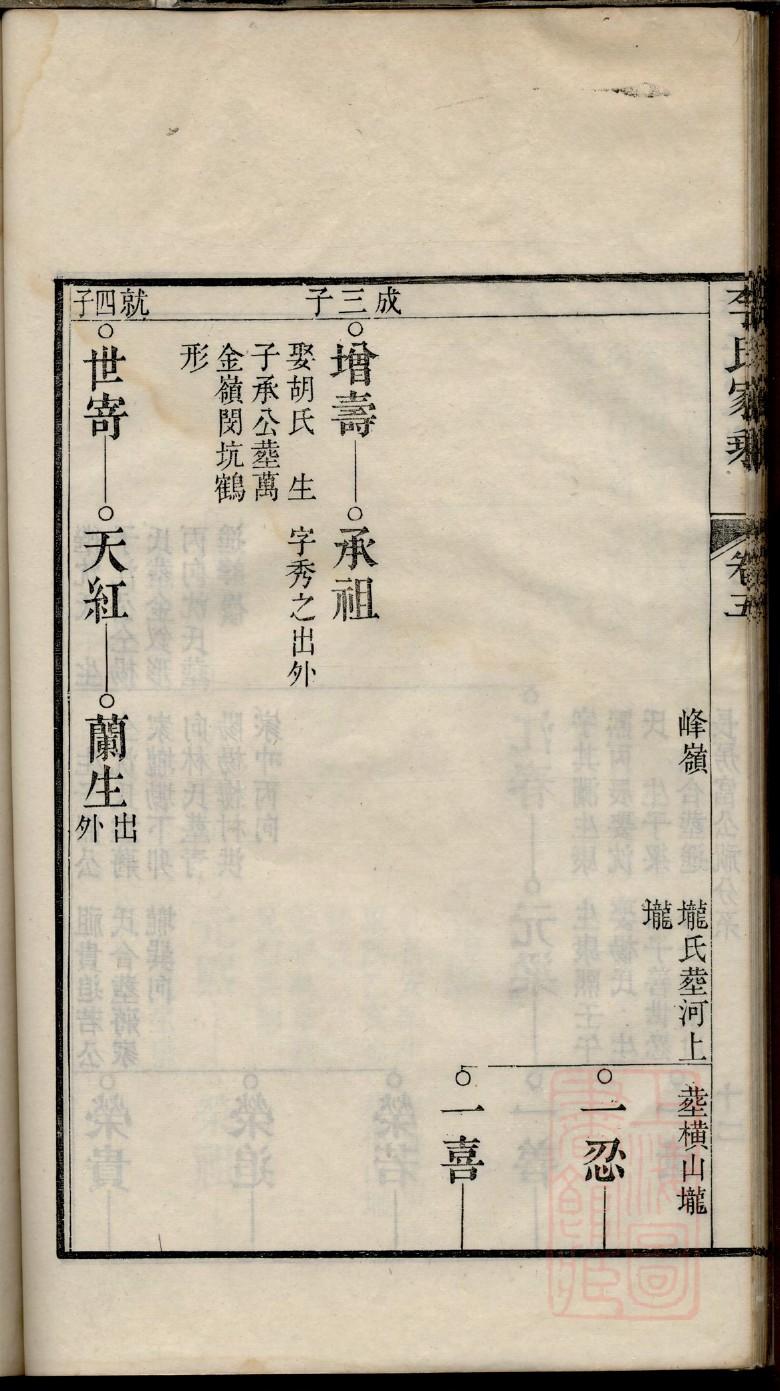 李氏家乘
卷五
峰嶺
壠氏塟河上
壠
塟橫山壠
一忍
一喜
成三子
增壽
娶胡氏 生
子承公塟萬
金嶺閔坑鶴
形
承祖
字秀之出外
就四子
世寄
天紅
蘭生
出
外